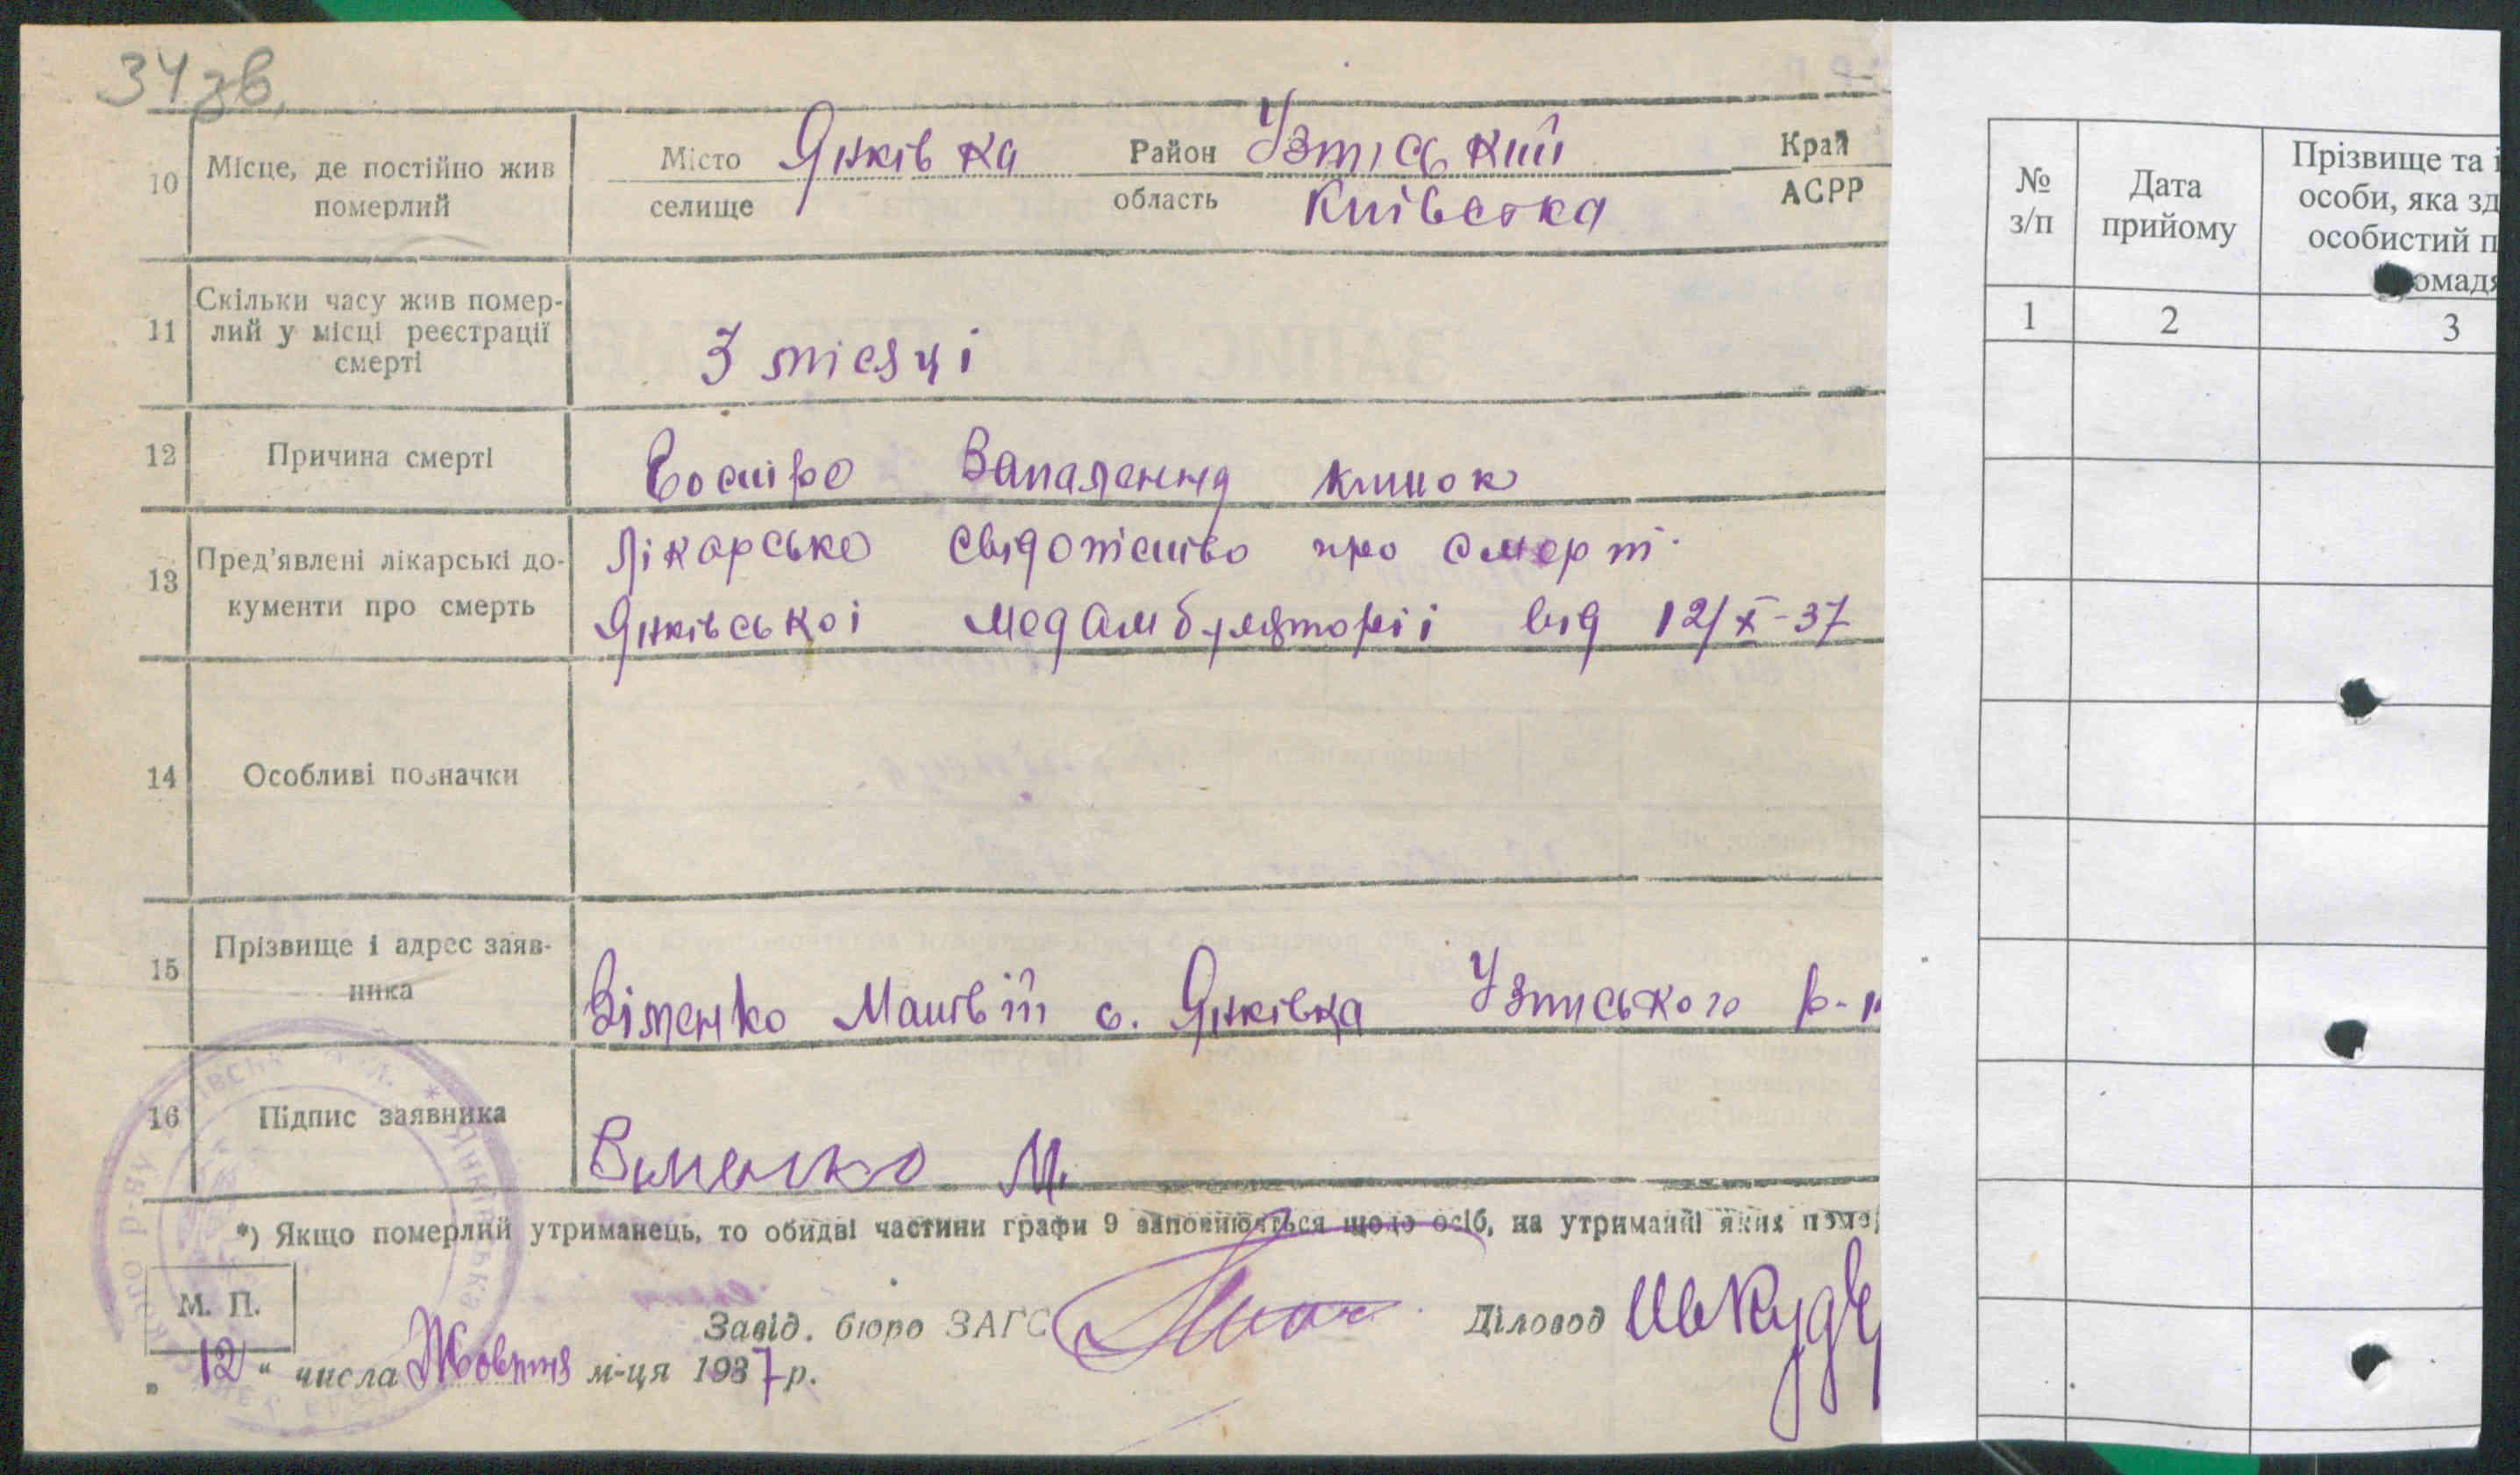 34 зв.
10 Місце, де постійно жив померлий
Місто Янківка Район Узтиський Край
селище область Київська АСРР
11 Скільки часу жив помер-
лий у місці реєстрації
смерті
3 місяці
12 Причина смерті
Востре Запалення кишок
13 Пред'явлені лікарські до-
кументи про смерть
Лікарське свідотство про смерт
Янківської медамбуляторії від 12/X-37
14 Особливі позначки
15 Прізвище і адрес заяв-
ника
Зіменко Матвій с. Янківка Узтиського р-н
16 Підпис заявника
Зименко М.
*) Якщо померлий утриманець, то обидві частини графи 9 заповнюються щодо осіб, на утриманні яких помер
М. П.
Завід. бюро ЗАГС Діловод
„12" числа Жовтня м-ця 1937 р.
№
з/п
Дата
прийому
Прізвище та і
особи, яка зд
особистий п
омадя
1 2 3